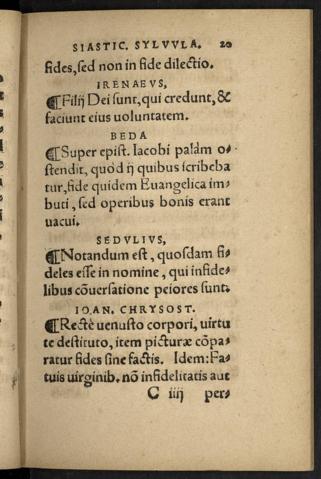 SIASTIC. SYLVVLA. 20
fides, sed non in fide dilectio.
IRENAEVS,
¶Filij Dei sunt, qui credunt, &
faciunt eius uoluntatem.
BEDA
¶Super epist. Iacobi palàm o⸗
stendit, quòd ij quibus scribeba
tur, fide quidem Euangelica im⸗
buti, sed operibus bonis erant
uacui.
SEDVLIVS,
¶Notandum est, quosdam fi⸗
deles esse in nomine, qui infide⸗
libus cōuersatione peiores sunt.
IOAN. CHRYSOST.
¶Rectè uenusto corpori, uirtu
te destituto, item picturæ cōpa⸗
ratur fides sine factis. Idem: Fa⸗
tuis uirginib. nō infidelitatis aut
C iiij per⸗